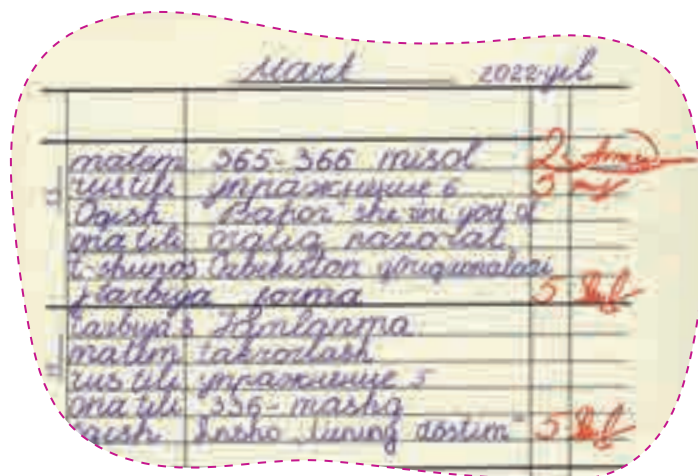 Mart 2022-yil
matem 365-366 misol 2
rus tili упражнение 6 5
Oqish Bahor she'rini yod ol
ona tili oraliq nazorat
t-shunos Ozbekiston yirtqunalari
Tarbiya forma 5
tarbiya's Jamlanma
matem takrorlash
rus tili упражнение 5
ona tili 336-mashq
oqish Insho "Mening dostim" 5